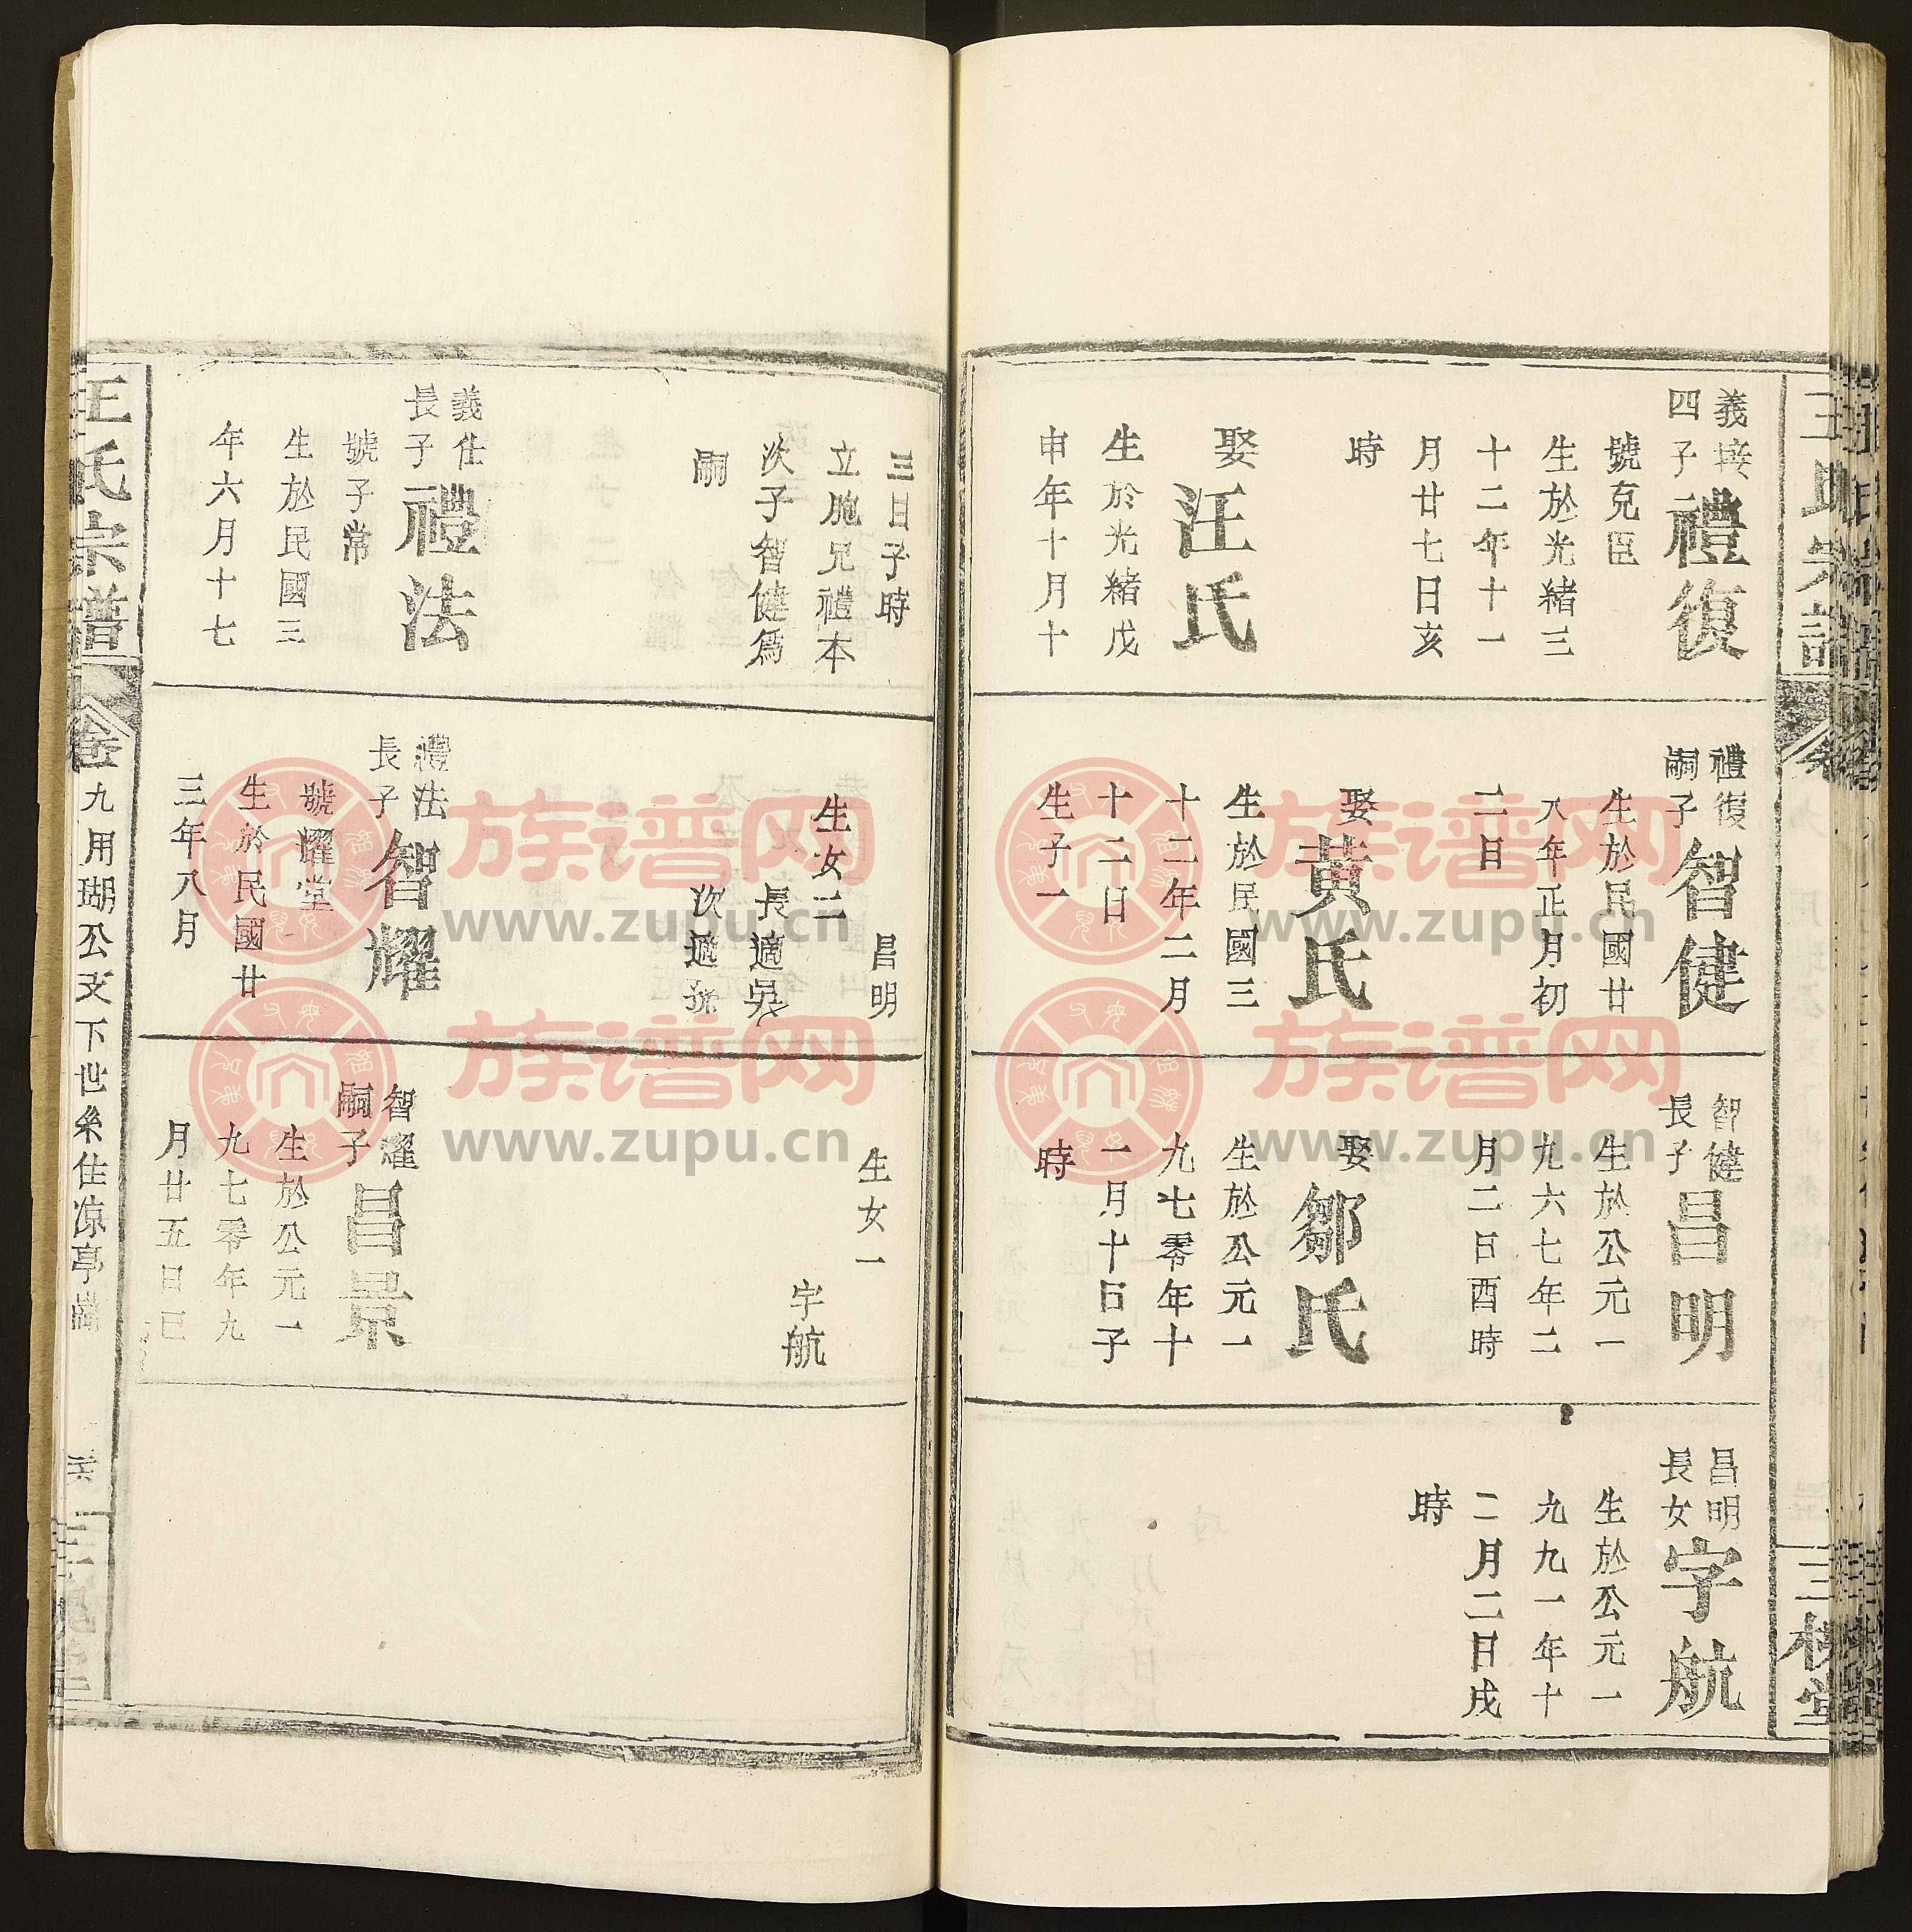 王氏宗譜
三槐堂
義
四子
禮復
號克臣
生於光緒三
十二年十一
月廿七日亥
時
娶
汪氏
生於光緒戊
申年十月十
禮復
嗣子
智健
生於民國廿
八年正月初
二日
娶
黄氏
生於民國三
十二年二月
十二日
生子一
智健
長子
昌明
生於公元一
九六七年二
月二日酉時
娶
鄒氏
生於公元一
九七零年十
一月十日子
時
昌明
長女
宇航
生於公元一
九九一年十
二月二日戌
時
三日子時
立胞兄禮本
次子智健爲
嗣
義仕
長子
禮法
號子常
生於民國三
年六月十七
昌明
生女二
長適吳
次適張
禮法
長子
智耀
號耀堂
生於民國廿
三年八月
生女一
宇航
智耀
嗣子
昌景
生於公元一
九七零年九
月廿五日巳
王氏宗譜
卷九用瑚公支下世系住凉亭崗
三槐堂
族谱网
www.zupu.cn
族谱网
www.zupu.cn
族谱网
www.zupu.cn
族谱网
www.zupu.cn